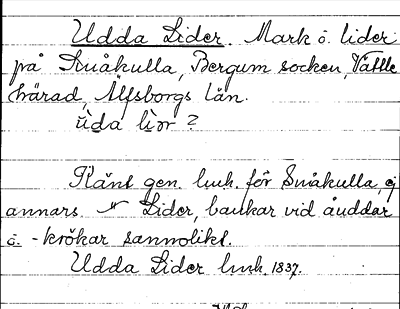 Udda Lider. Mark o. lider
på Småkulla, Bergum socken, Vättle
härad, Älfsborgs län.
ùda lìər ?
Känt gen. lmk. för Småkulla, ej
annars. Lider, backar vid åuddar
o. -krökar sannolikt.
Udda Lider lmk. 1837.